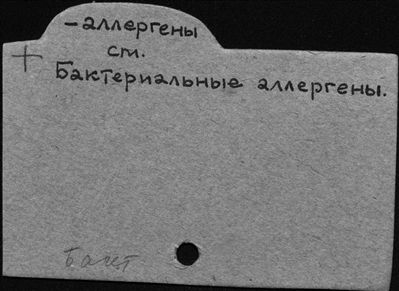 -аллергены
+ см.
Бактериальные аллергены.